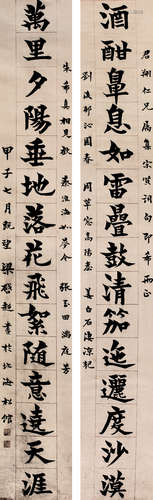 君翔仁兄屬集宋賢詞句即希雨正
酒酣鼻息如雷疊鼓清笳迤邐度沙漠
劉後邨沁園春 周草窗高陽臺 姜白石淒涼犯
朱希真相見歡 秦淮海如夢令 張玉田滿庭芳
萬里夕陽垂地落花飛絮隨意遶天涯
甲子七月既望 梁啟超書於北海松館